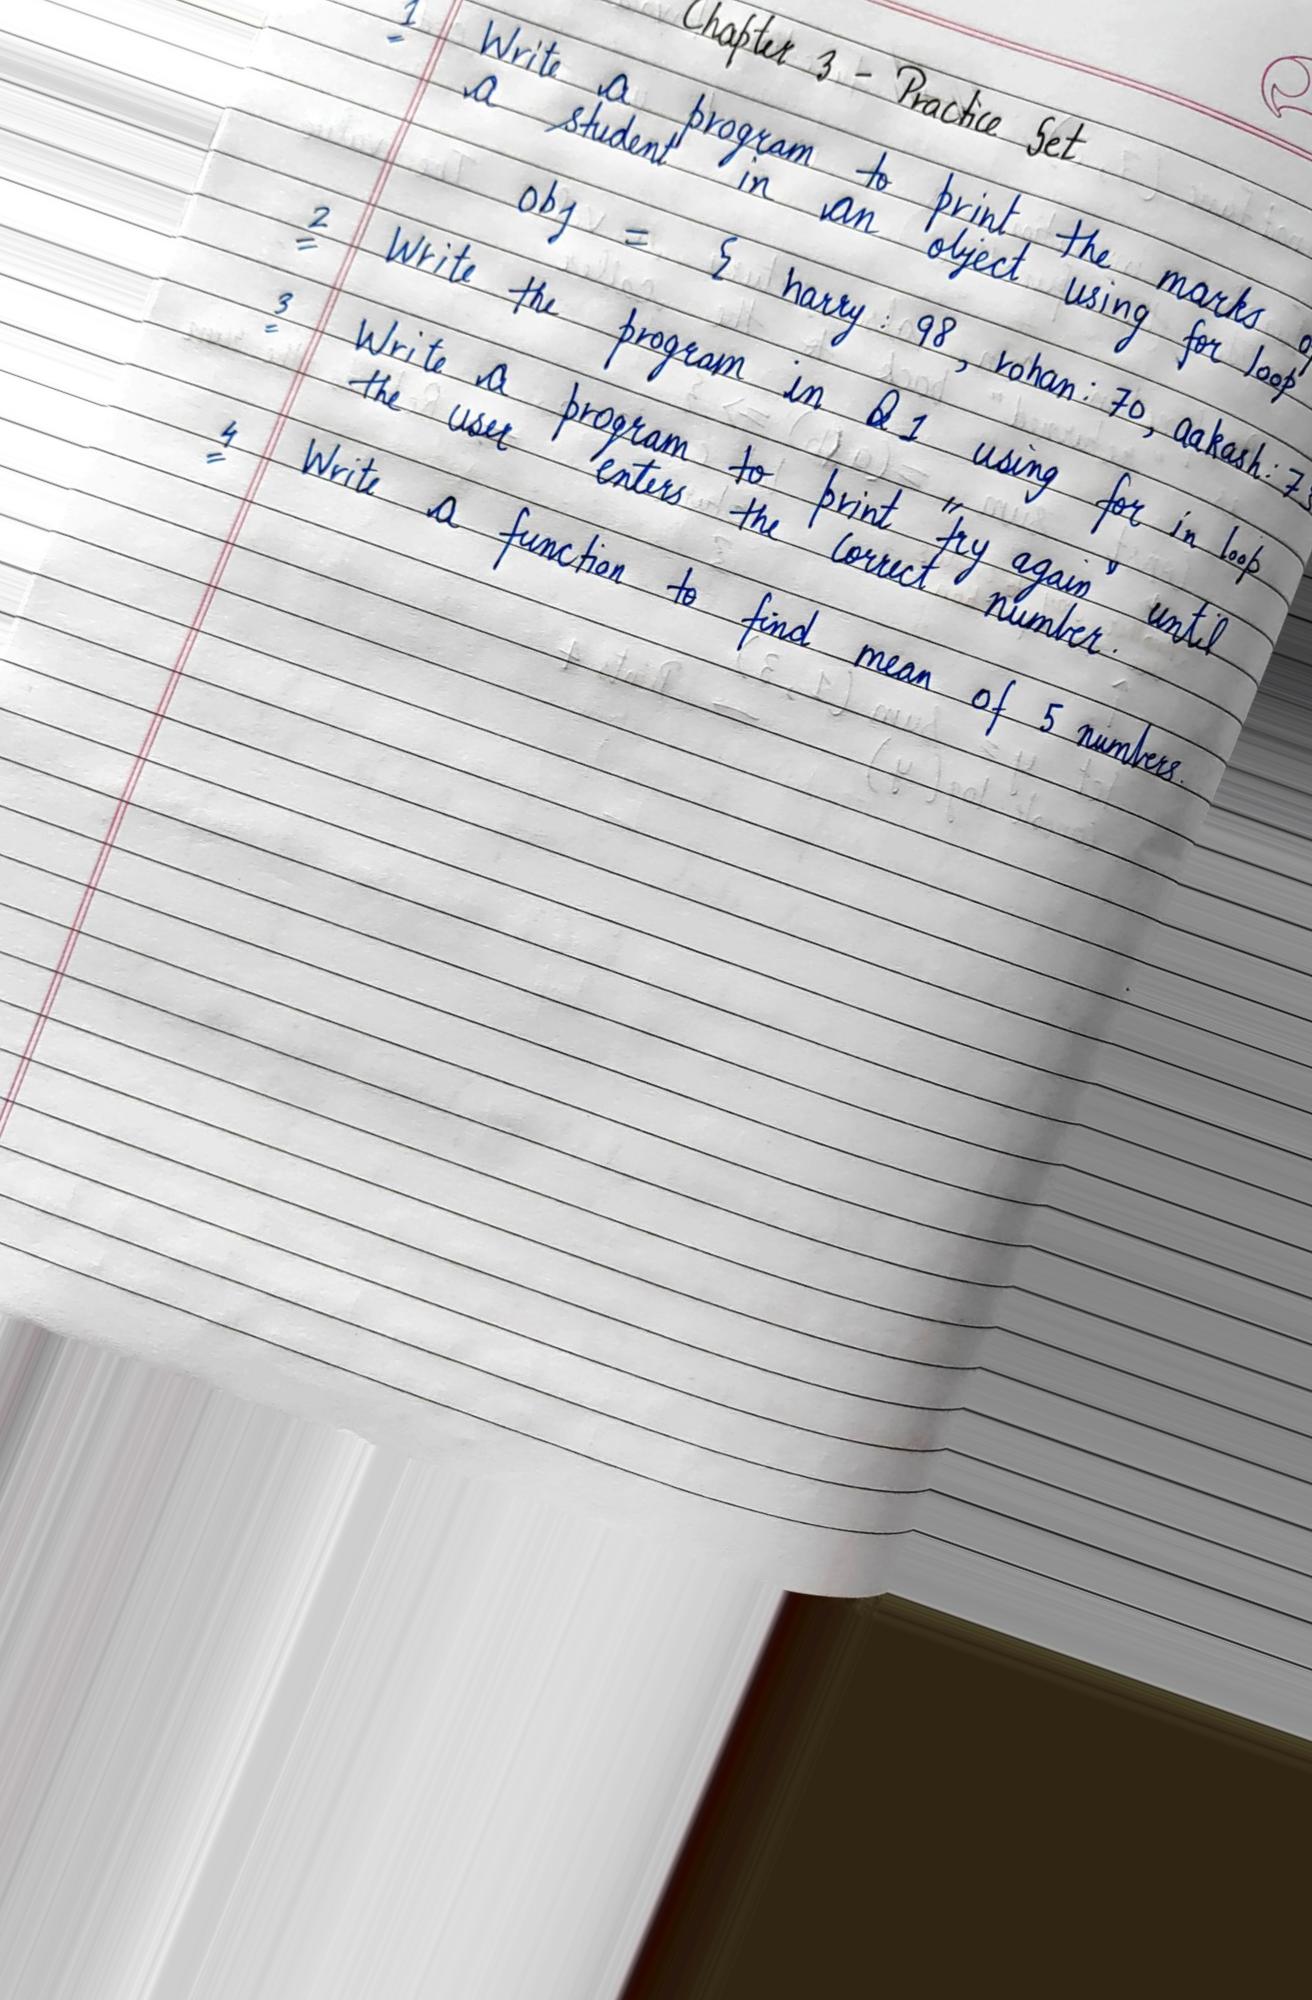 Chapter 3 - Practice Set
1 Write a program to print the marks
a student in an object using for loop
obj = { harry: 98, rohan: 70, aakash: 7
2 Write the program in Q1 using for in loop
3 Write a program to print "try again" until
the user enters the correct number.
4 Write a function to find mean of 5 numbers.